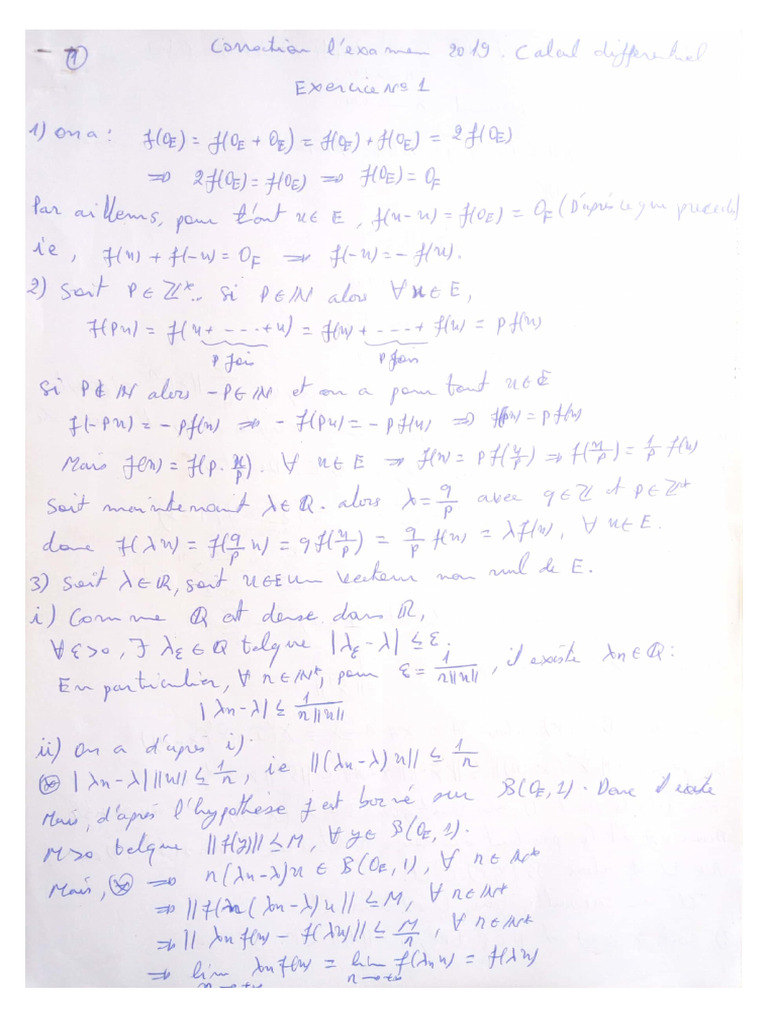 1
Correction l'examen 2019. Calcul differentiel
Exercice N° 1
1) on a : f(0_E) = f(0_E + 0_E) = f(0_E) + f(0_E) = 2f(0_E)
⇒ 2f(0_E) = f(0_E) ⇒ f(0_E) = 0_F
Par ailleurs, pour tout u ∈ E, f(u-u) = f(0_E) = 0_F (D'après ce que precede)
ie, f(u) + f(-u) = 0_F ⇒ f(-u) = -f(u).
2) Soit P ∈ ℤ*. Si P ∈ ℕ alors ∀ u ∈ E,
f(Pu) = f(u + ---- + u) = f(u) + ---- + f(u) = p f(u)
p fois p fois
Si P ∉ ℕ alors -P ∈ ℕ et on a pour tout u ∈ E
f(-Pu) = -pf(u) ⇒ -f(Pu) = -pf(u) ⇒ = pf(u)
Mais f(u) = f(p.u/p). ∀ u ∈ E ⇒ f(u) = p f(u/p) ⇒ f(u/p) = 1/p f(u)
Soit maintenant λ ∈ ℚ. alors λ = q/p avec q ∈ ℤ et p ∈ ℤ*
donc f(λu) = f(q/p u) = q f(u/p) = q/p f(u) = λf(u), ∀ u ∈ E.
3) Soit λ ∈ ℝ, soit u ∈ E un vecteur non nul de E.
i) Comme ℚ est dense dans ℝ,
∀ ε > 0, ∃ λ_ε ∈ ℚ telque |λ_ε - λ| ≤ ε.
En particulier, ∀ n ∈ ℕ*, pour ε = 1/(n||u||), il existe λn ∈ ℚ :
|λn - λ| ≤ 1/(n||u||)
ii) On a d'après i)
⊛ |λn - λ| ||u|| ≤ 1/n, ie ||(λn - λ)u|| ≤ 1/n
Mais, d'après l'hypothèse f est borné sur B(0_E, 1). Donc il existe
M>0 telque ||f(y)|| ≤ M, ∀ y ∈ B(0_E, 1).
Mais, ⊛ ⇒ n(λn - λ)u ∈ B(0_E, 1), ∀ n ∈ ℕ*
⇒ ||f(n(λn - λ)u)|| ≤ M, ∀ n ∈ ℕ*
⇒ ||λn f(u) - f(λu)|| ≤ M/n, ∀ n ∈ ℕ*
⇒ lim λn f(u) = lim f(λn u) = f(λu)
n→+∞ n→+∞